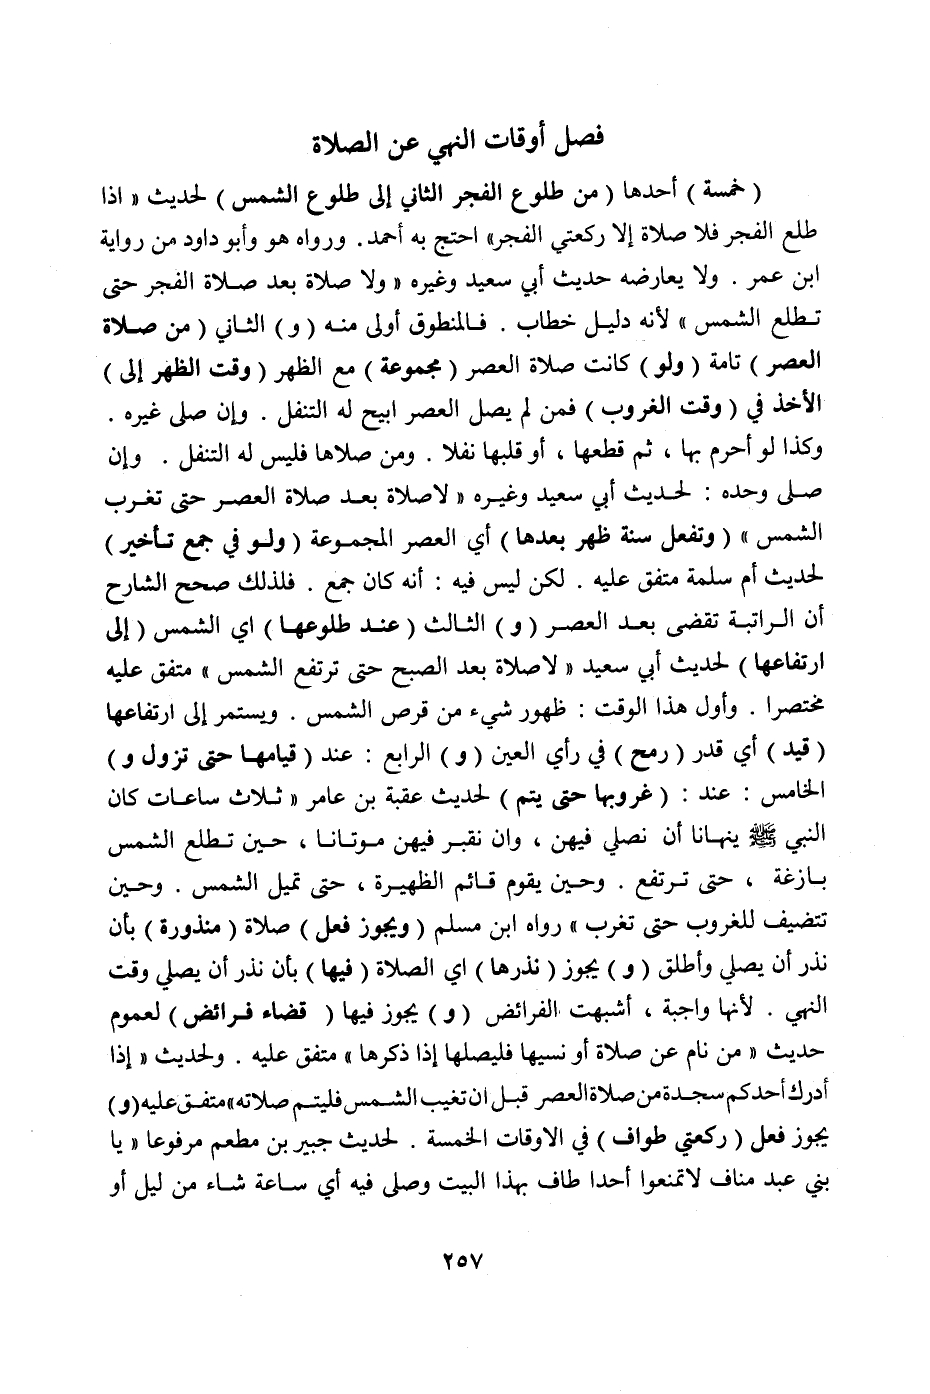 فصل أوقات النهي عن الصلاة
( خمسة ) أحدها ( من طلوع الفجر الثاني إلى طلوع الشمس ) لحديث « اذا
طلع الفجر فلا صلاة إلا ركعتي الفجر» احتج به أحمد. ورواه هو وأبو داود من رواية
ابن عمر . ولا يعارضه حديث أبي سعيد وغيره « ولا صلاة بعد صلاة الفجر حتى
تطلع الشمس » لأنه دليل خطاب . فالمنطوق أولى منه ( و ) الثاني ( من صلاة
العصر ) تامة ( ولو ) كانت صلاة العصر ( مجموعة ) مع الظهر ( وقت الظهر إلى )
الأخذ في ( وقت الغروب ) فمن لم يصل العصر ابيح له التنفل . وإن صلى غيره .
وكذا لو أحرم بها ، ثم قطعها ، أو قلبها نفلا . ومن صلاها فليس له التنفل . وإن
صلى وحده : لحديث أبي سعيد وغيره « لاصلاة بعد صلاة العصر حتى تغرب
الشمس » ( وتفعل سنة ظهر بعدها ) أي العصر المجموعة ( ولو في جمع تأخير )
لحديث أم سلمة متفق عليه . لكن ليس فيه : أنه كان جمع . فلذلك صحح الشارح
أن الراتبة تقضى بعد العصر ( و ) الثالث ( عند طلوعها ) اي الشمس ( إلى
ارتفاعها ) لحديث أبي سعيد « لاصلاة بعد الصبح حتى ترتفع الشمس » متفق عليه
مختصرا . وأول هذا الوقت : ظهور شيء من قرص الشمس . ويستمر إلى ارتفاعها
( قيد ) أي قدر ( رمح ) في رأي العين ( و ) الرابع : عند ( قيامها حتى تزول و )
الخامس : عند : ( غروبها حتى يتم ) لحديث عقبة بن عامر « ثلاث ساعات كان
النبي ﷺ ينهانا أن نصلي فيهن ، وان نقبر فيهن موتانا ، حين تطلع الشمس
بازغة ، حتى ترتفع . وحين يقوم قائم الظهيرة ، حتى تميل الشمس . وحين
تتضيف للغروب حتى تغرب » رواه ابن مسلم ( ويجوز فعل ) صلاة ( منذورة ) بأن
نذر أن يصلي وأطلق ( و ) يجوز ( نذرها ) اي الصلاة ( فيها ) بأن نذر أن يصلي وقت
النهي . لأنها واجبة ، أشبهت الفرائض ( و ) يجوز فيها ( قضاء فرائض ) لعموم
حديث « من نام عن صلاة أو نسيها فليصلها إذا ذكرها » متفق عليه . ولحديث « إذا
أدرك أحدكم سجدة من صلاة العصر قبل ان تغيب الشمس فليتم صلاته» متفق عليه (و)
يجوز فعل ( ركعتي طواف ) في الاوقات الخمسة . لحديث جبير بن مطعم مرفوعا « يا
بني عبد مناف لاتمنعوا أحدا طاف بهذا البيت وصلى فيه أي ساعة شاء من ليل أو
٢٥٧